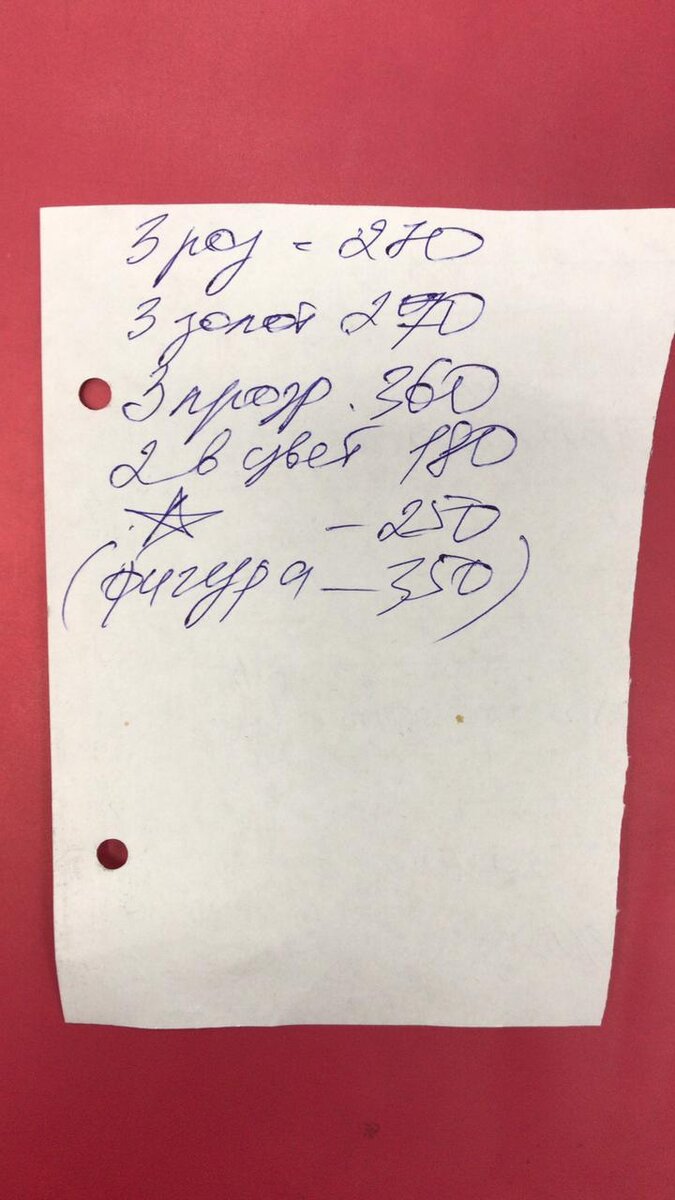 3 роз = 270
3 золот 270
3 прозр. 360
2 в цвет 180
☆ - 250
(фигура - 350)